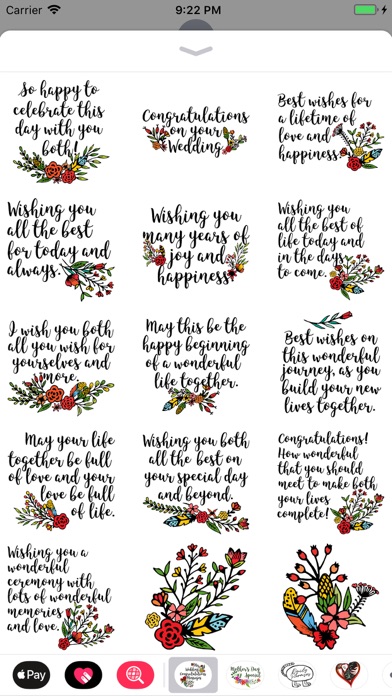 Carrier
9:22 PM
So happy to
celebrate this
day with you
both!
Congratulations
on your
Wedding
Best wishes for
a lifetime of
love and
happiness
Wishing you
all the best
for today and
always.
Wishing you
many years of
joy and
happiness
Wishing you
all the best of
life today and
in the days
to come.
I wish you both
all you wish for
yourselves and
more.
May this be the
happy beginning
of a wonderful
life together.
Best wishes on
this wonderful
journey, as you
build your new
lives together.
May your life
together be full
of love and your
love be full
of life.
Wishing you both
all the best on
your special day
and beyond.
Congratulations!
How wonderful
that you should
meet to make both
your lives
complete!
Wishing you a
wonderful
ceremony with
lots of wonderful
memories
and love.
Pay
Wedding
Congratulations
Mother's Day